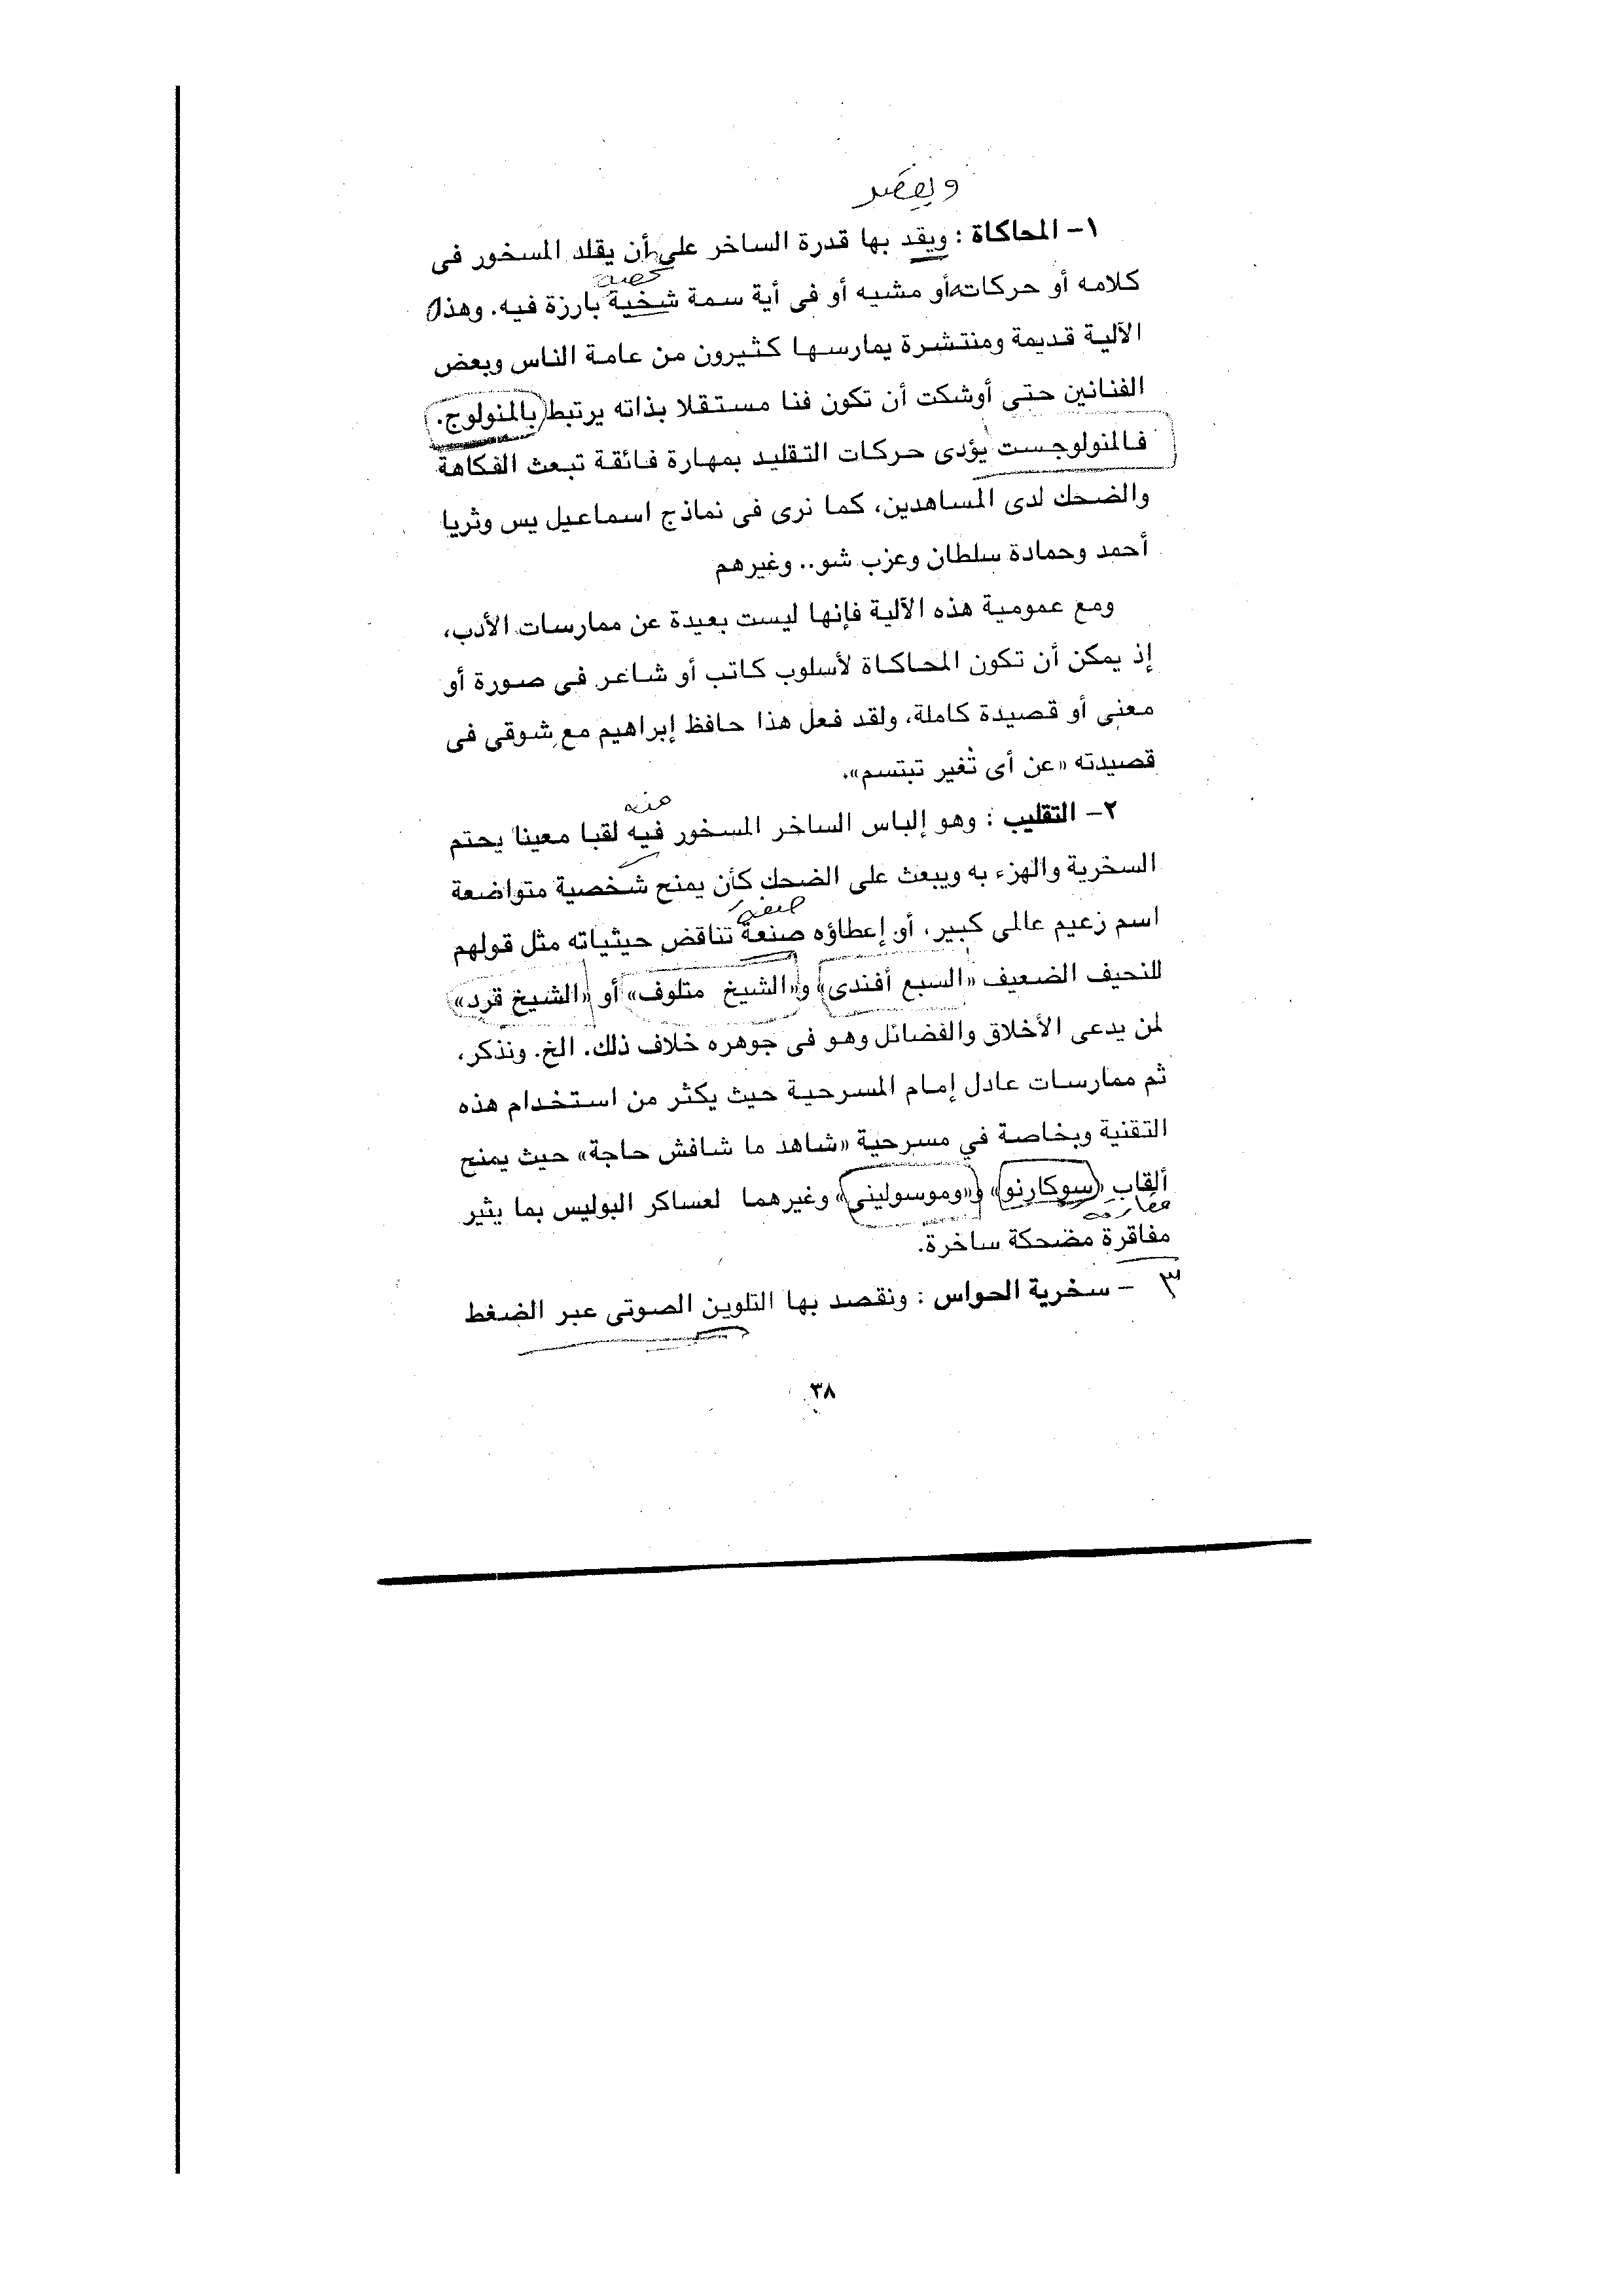 ويقصد
١- المحاكاة : ويقد بها قدرة الساخر على أن يقلد المسخور فى
شخصية
كلامه أو حركاته أو مشيه أو فى أية سمة شخية بارزة فيه. وهذه
الآلية قديمة ومنتشرة يمارسها كثيرون من عامة الناس وبعض
الفنانين حتى أوشكت أن تكون فنا مستقلا بذاته يرتبط بالمنولوج.
فالمنولوجست يؤدى حركات التقليد بمهارة فائقة تبعث الفكاهة
والضحك لدى المساهدين، كما نرى فى نماذج اسماعيل يس وثريا
أحمد وحمادة سلطان وعزب شو.. وغيرهم
ومع عمومية هذه الآلية فإنها ليست بعيدة عن ممارسات الأدب،
إذ يمكن أن تكون المحاكاة لأسلوب كاتب أو شاعر فى صورة أو
معنى أو قصيدة كاملة، ولقد فعل هذا حافظ إبراهيم مع شوقى فى
قصيدته «عن أى ثغير تبتسم».
منه
٢- التقليب : وهو إلباس الساخر المسخور فيه لقبا معينا يحتم
السخرية والهزء به ويبعث على الضحك كأن يمنح شخصية متواضعة
صفة
اسم زعيم عالى كبير، أو إعطاؤه صنعة تناقض حيثياته مثل قولهم
للنحيف الضعيف «السبع أفندى» و«الشيخ متلوف» أو «الشيخ قرد»
لمن يدعى الأخلاق والفضائل وهو فى جوهره خلاف ذلك. الخ. ونذكر،
ثم ممارسات عادل إمام المسرحية حيث يكثر من استخدام هذه
التقنية وبخاصة في مسرحية «شاهد ما شافش حاجة» حيث يمنح
ألقاب «سوكارنو» و«وموسولينى» وغيرهما لعساكر البوليس بما يثير
مفارقة
مفاقرة مضحكة ساخرة.
٣ - سخرية الحواس : ونقصد بها التلوين الصوتى عبر الضغط
٣٨